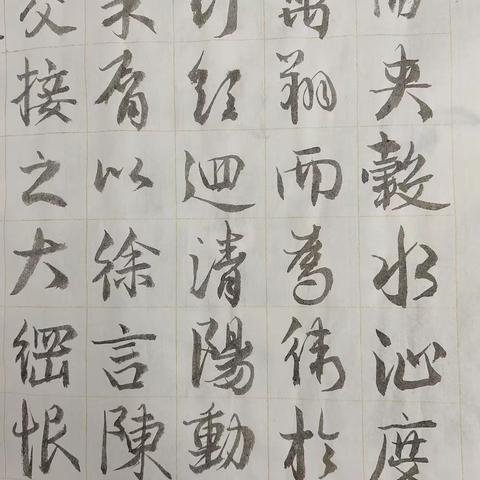 而夾轂水沚度
禽翔而為衛於
經迴清陽動
朱脣以徐言陳
交接之大綱恨